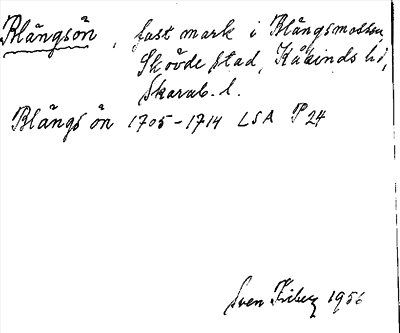 Blängsön, fast mark i Blängsmossen,
Skövde stad, Kåkinds hd,
Skarab. l.
Blängs ön 1705-1714 LSA P 24
Sven Friberg 1956